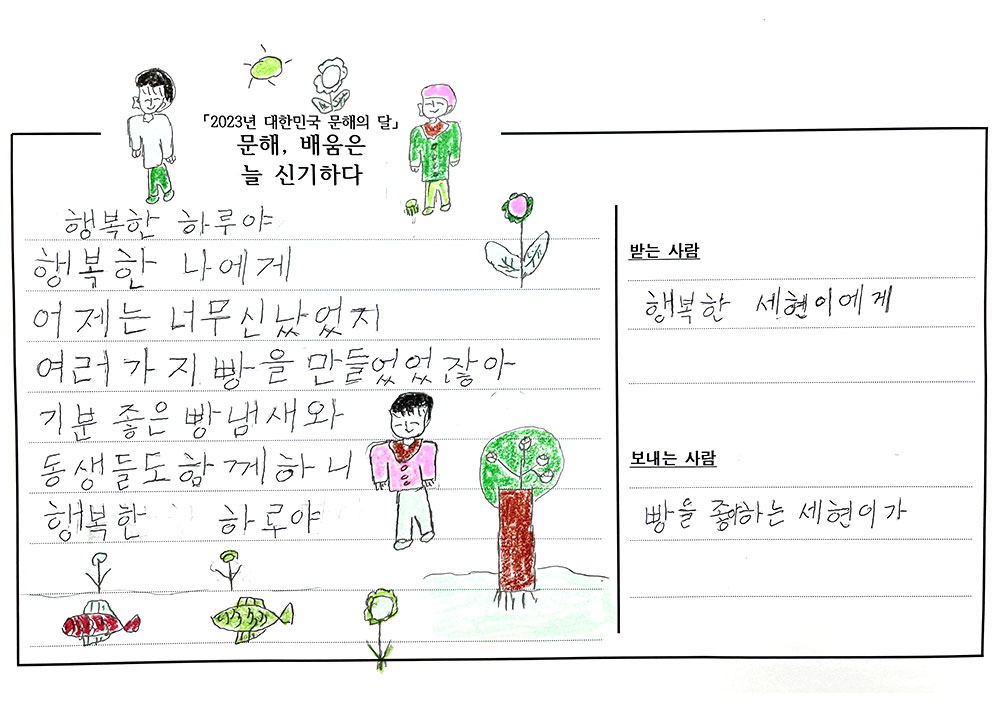 「2023년 대한민국 문해의 달」
문해, 배움은
늘 신기하다
행복한 하루야
행복한 나에게
어제는 너무신났었지
여러가지 빵을 만들었었잖아
기분 좋은 빵냄새와
동생들도함께하니
행복한 하로야
받는 사람
행복한 세현이에게
보내는 사람
빵을 좋아하는 세현이가